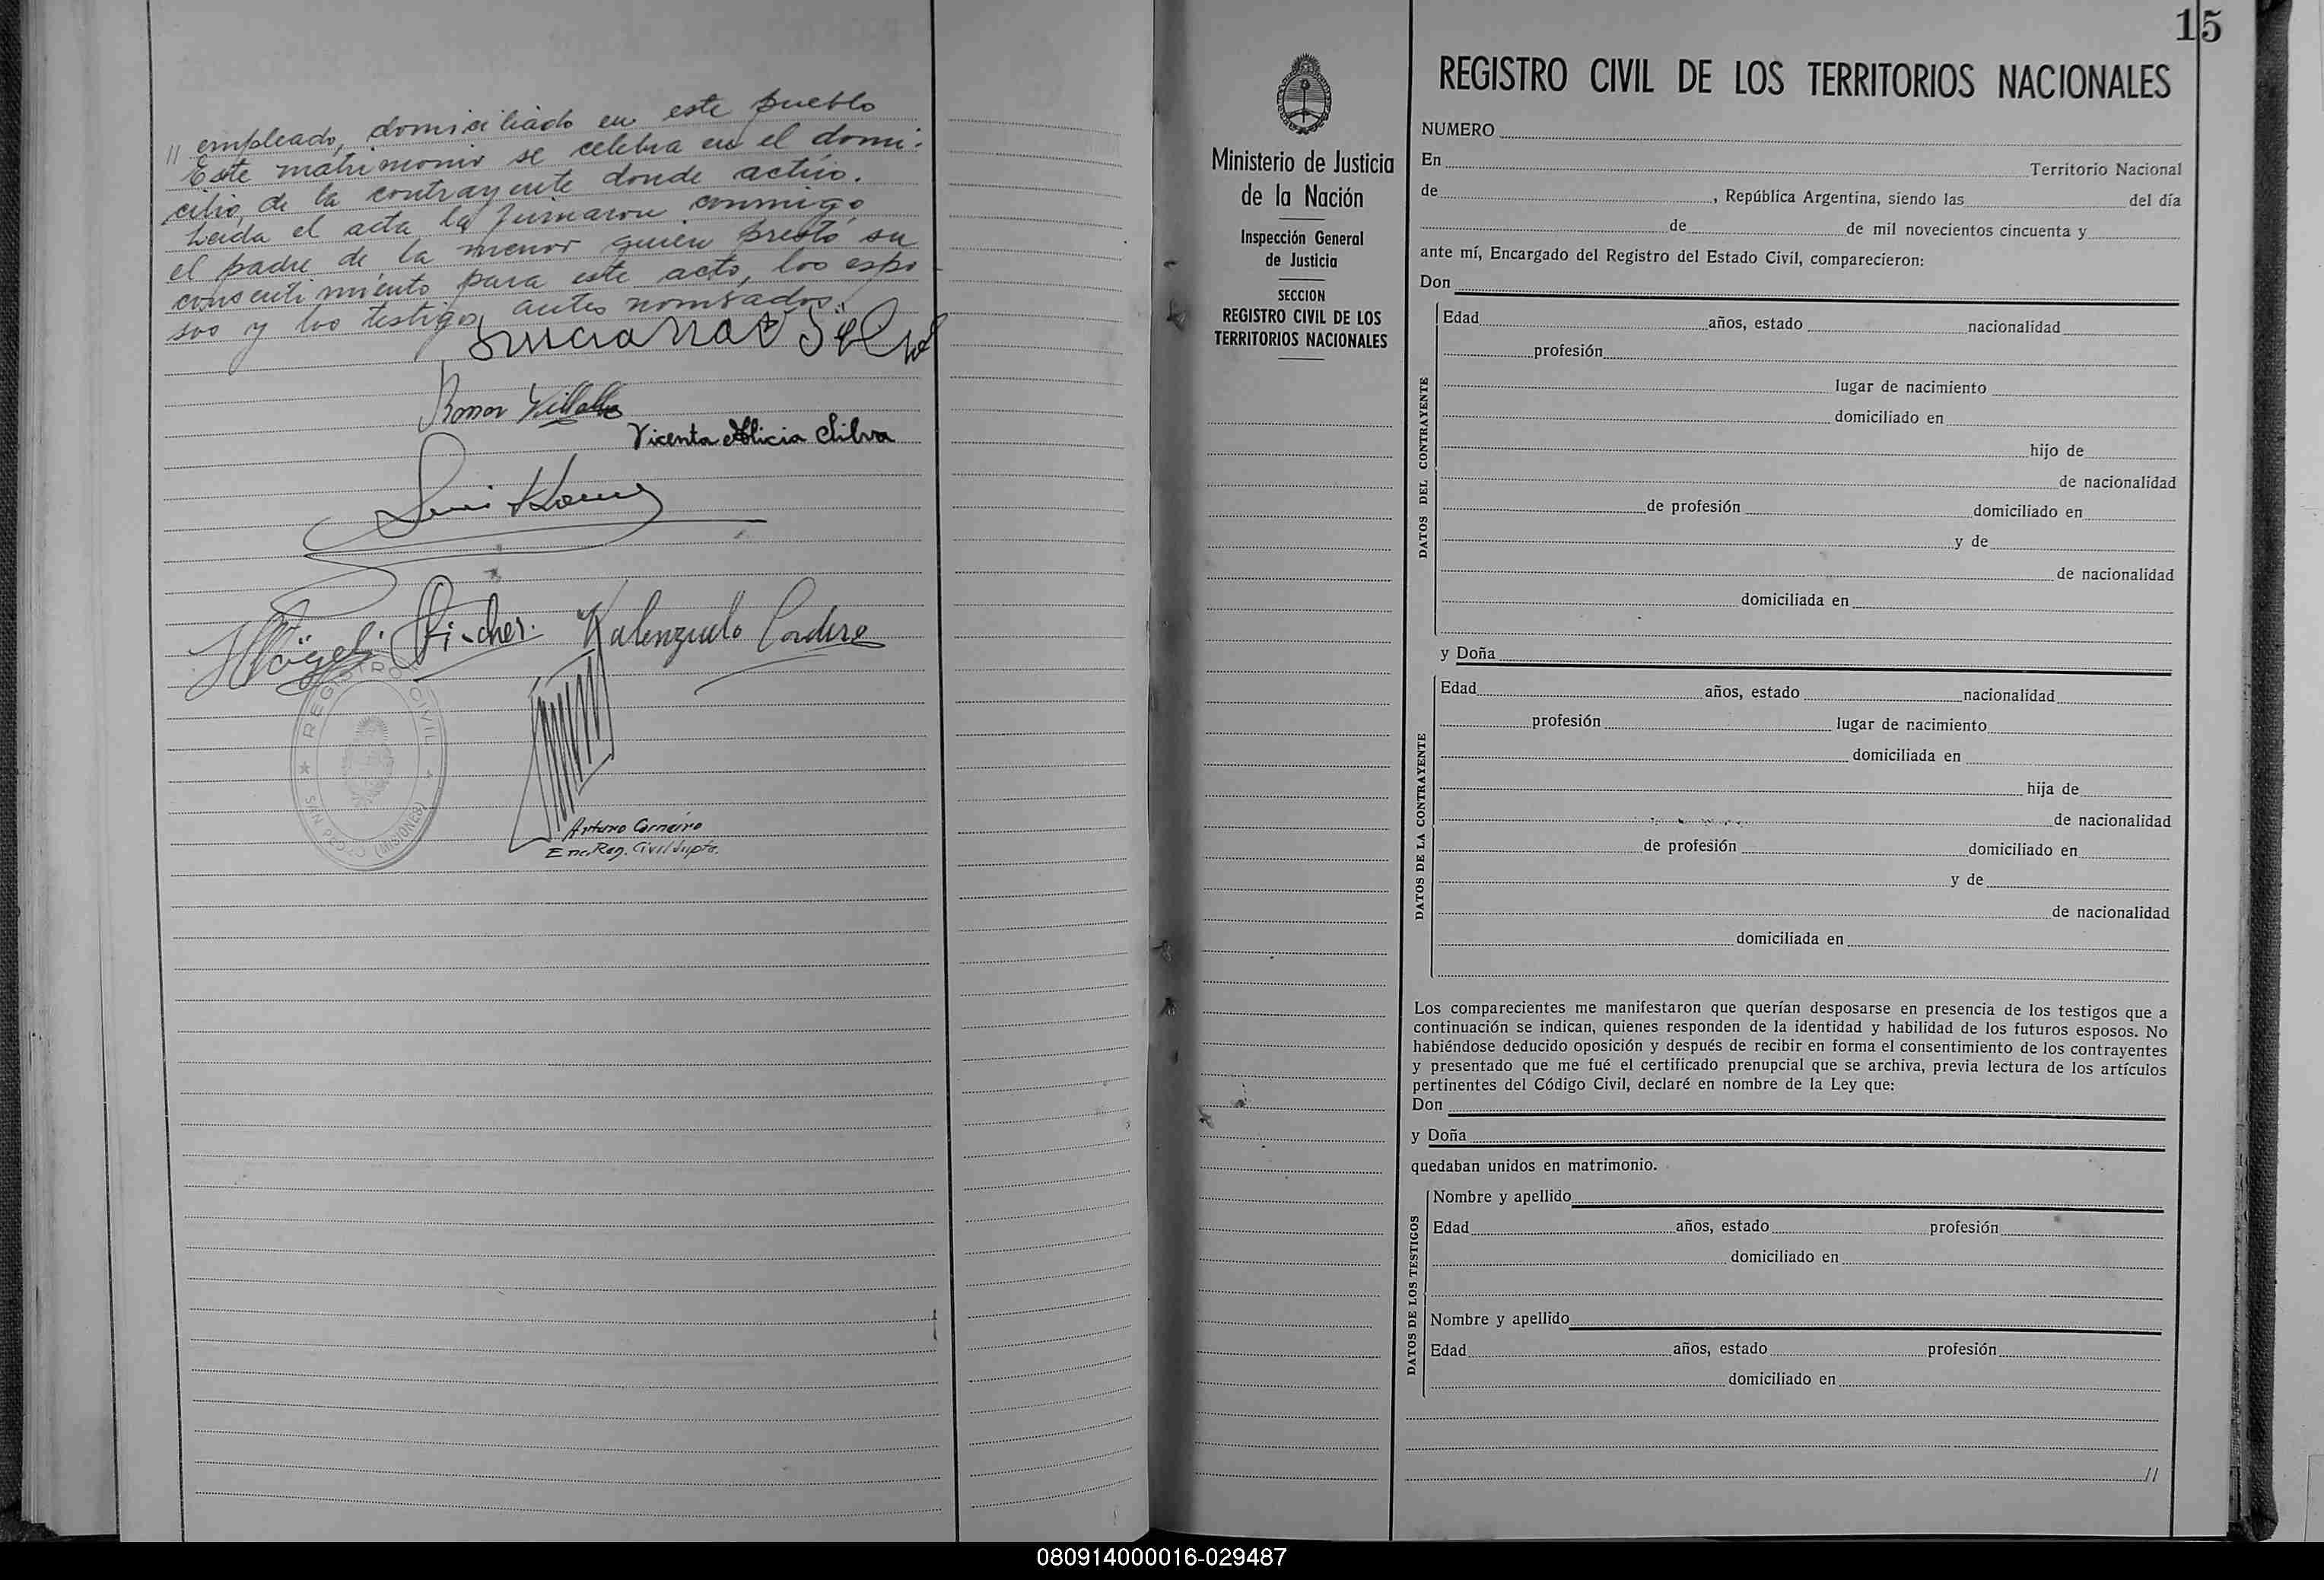 // empleado, domiciliado en este pueblo
Este matrimonio se celebra en el domi-
cilio de la contrayente donde actúo.
Leida el acta la firmaron conmigo,
el padre de la menor quien prestó su
consentimiento para este acto, los espo
sos y los testigos antes nombrados.
Silva
Ramon Villalba
Vicenta Alicia Silva
Luis
Valenzuela Cordero
REGISTRO CIVIL
SAN PEDRO (MISIONES)
Arturo Carneiro
Enc. Reg. Civil Supte.
15
Ministerio de Justicia
de la Nación
Inspección General
de Justicia
SECCION
REGISTRO CIVIL DE LOS
TERRITORIOS NACIONALES
REGISTRO CIVIL DE LOS TERRITORIOS NACIONALES
NUMERO
En Territorio Nacional
de , República Argentina, siendo las del día
de de mil novecientos cincuenta y
ante mí, Encargado del Registro del Estado Civil, comparecieron:
Don
DATOS DEL CONTRAYENTE
Edad años, estado nacionalidad
profesión
lugar de nacimiento
domiciliado en
hijo de
de nacionalidad
de profesión domiciliado en
y de
de nacionalidad
domiciliada en
y Doña
DATOS DE LA CONTRAYENTE
Edad años, estado nacionalidad
profesión lugar de nacimiento
domiciliada en
hija de
de nacionalidad
de profesión domiciliado en
y de
de nacionalidad
domiciliada en
Los comparecientes me manifestaron que querían desposarse en presencia de los testigos que a
continuación se indican, quienes responden de la identidad y habilidad de los futuros esposos. No
habiéndose deducido oposición y después de recibir en forma el consentimiento de los contrayentes
y presentado que me fué el certificado prenupcial que se archiva, previa lectura de los artículos
pertinentes del Código Civil, declaré en nombre de la Ley que:
Don
y Doña
quedaban unidos en matrimonio.
DATOS DE LOS TESTIGOS
Nombre y apellido
Edad años, estado profesión
domiciliado en
Nombre y apellido
Edad años, estado profesión
domiciliado en
//
080914000016-029487